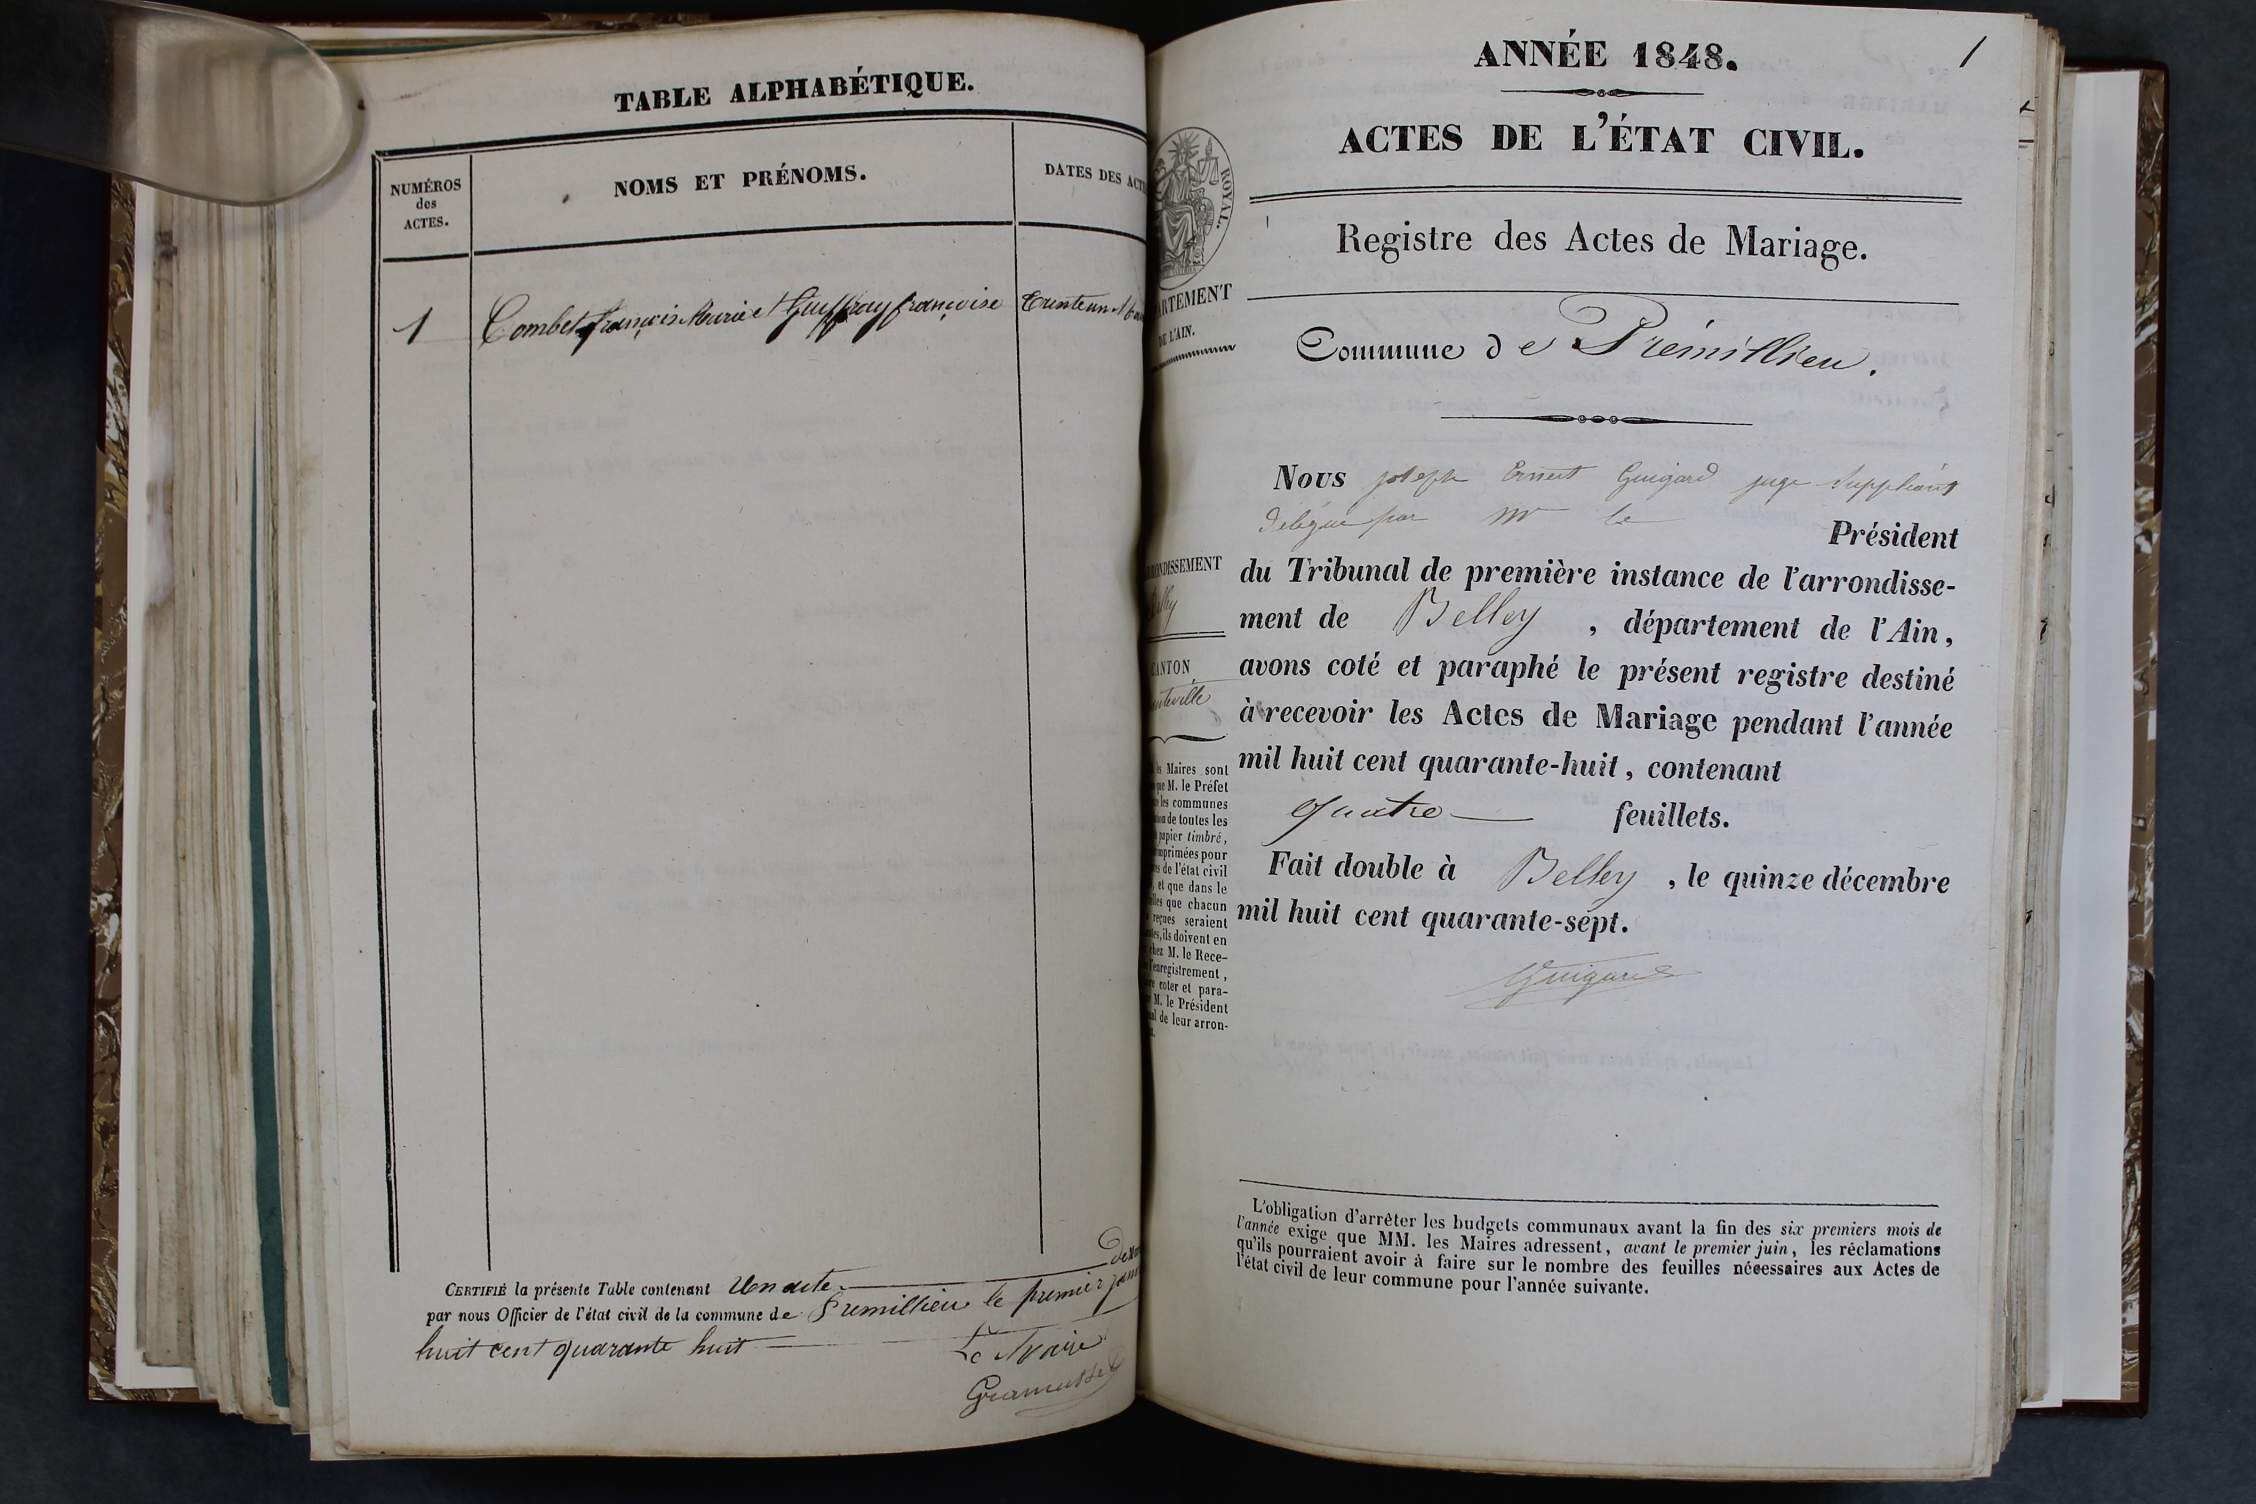 TABLE ALPHABÉTIQUE.
NUMÉROS
des
ACTES.
NOMS ET PRÉNOMS.
DATES DES ACT
1 Combet françois Marie et Guiffray françoise trente un
CERTIFIÉ la présente Table contenant Un acte
par nous Officier de l'état civil de la commune de Premillieu le premier janv
huit cent quarante huit
Le Maire
ANNÉE 1848.
1
ACTES DE L'ÉTAT CIVIL.
Registre des Actes de Mariage.
Commune de Prémillieu.
ROYAL.
ARTEMENT
DE L'AIN.
Nous joseph Ernest Guigard juge Suppléant
délégué par Mr le Président
du Tribunal de première instance de l'arrondisse-
ment de Belley, département de l'Ain,
avons coté et paraphé le présent registre destiné
à recevoir les Actes de Mariage pendant l'année
mil huit cent quarante-huit, contenant
quatre feuillets.
Fait double à Belley, le quinze décembre
mil huit cent quarante-sept.
Guigard
ONDISSEMENT
elley
CANTON
uteville
es Maires sont
que M. le Préfet
les communes
ion de toutes les
papier timbré,
imprimées pour
es de l'état civil
, et que dans le
elles que chacun
reçues seraient
ntes, ils doivent en
chez M. le Rece-
l'enregistrement,
re coter et para-
M. le Président
al de leur arron-
L'obligation d'arrêter les budgets communaux avant la fin des six premiers mois de
l'année exige que MM. les Maires adressent, avant le premier juin, les réclamations
qu'ils pourraient avoir à faire sur le nombre des feuilles nécessaires aux Actes de
l'état civil de leur commune pour l'année suivante.